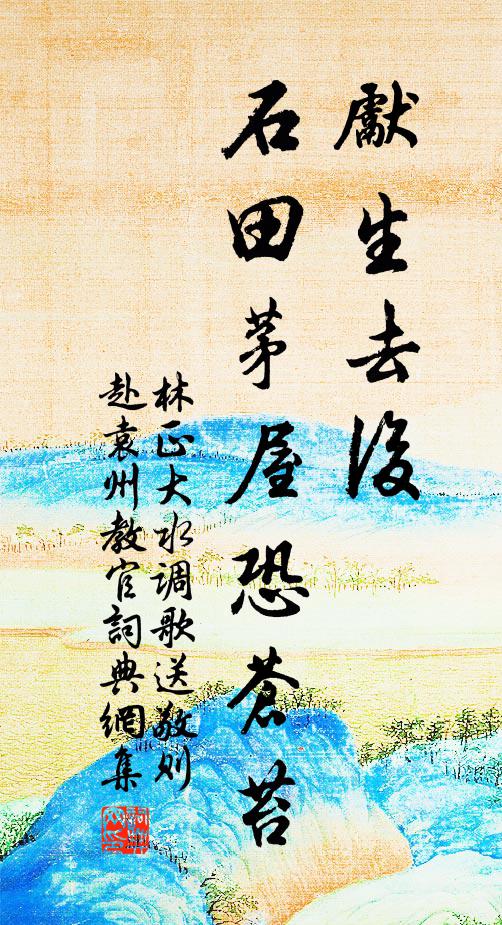 獻生去後
石田茅屋恐蒼苔
林正大水调歌送敬则
赴袁州教官詞典網集